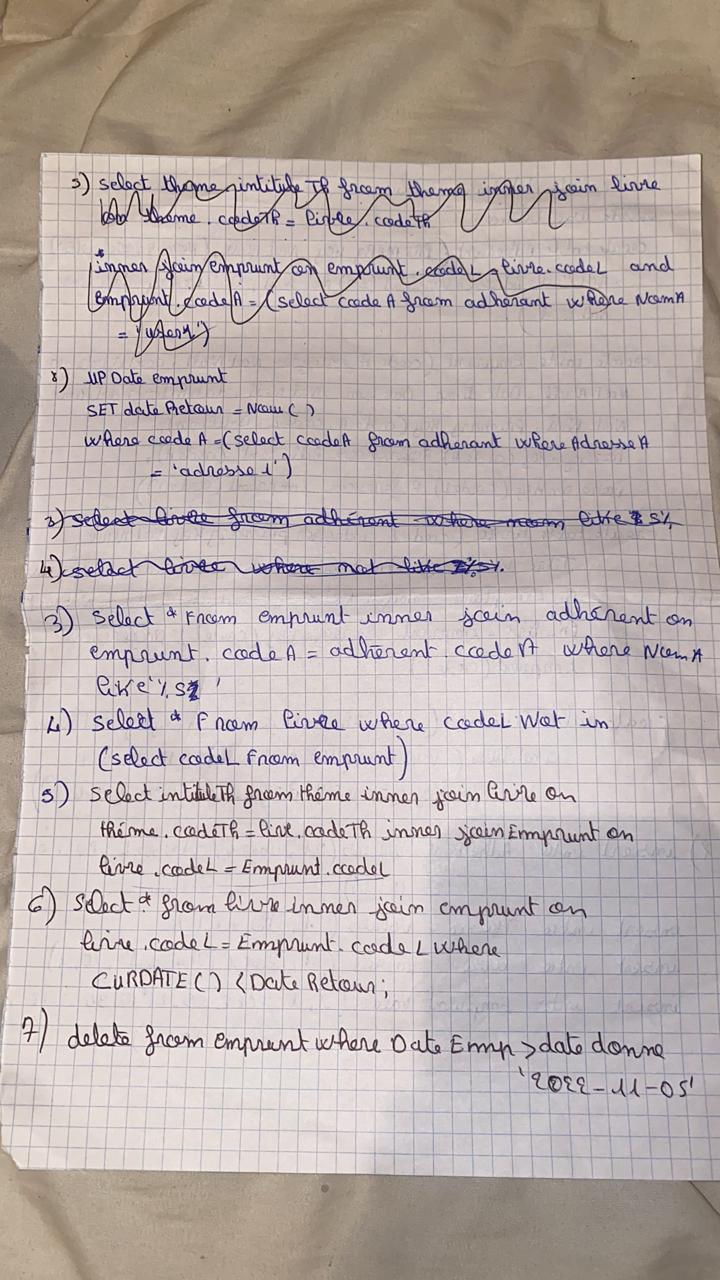 5) select theme, intitule Th from theme inner join livre
theme. codeTh = livre. codeTh
inner join emprunt on emprunt. codeL = livre. codeL and
Emprunt. codeA = (select codeA from adherant where NomA
= 'user1')
8) UPDate emprunt
SET date Retour = Now ( )
where codeA = (select codeA from adherant where AdresseA
= 'adresse 1')
3) select livre from adhérent where nom like % s%
4) select livre where not like % s%.
3) Select * From emprunt inner join adhérent on
emprunt. codeA = adhérent. codeA where NomA
like '% s% '
4) select * From livre where codeL Not in
(select codeL From emprunt)
5) select intituleTh from thème inner join livre on
thème. codeTh = livre. codeTh inner join Emprunt on
livre. codeL = Emprunt. codeL
6) select * from livre inner join emprunt on
livre. codeL = Emprunt. codeL where
CURDATE ( ) < Date Retour ;
7) delete from emprunt where Date Emp > date donne
'2022-11-05'